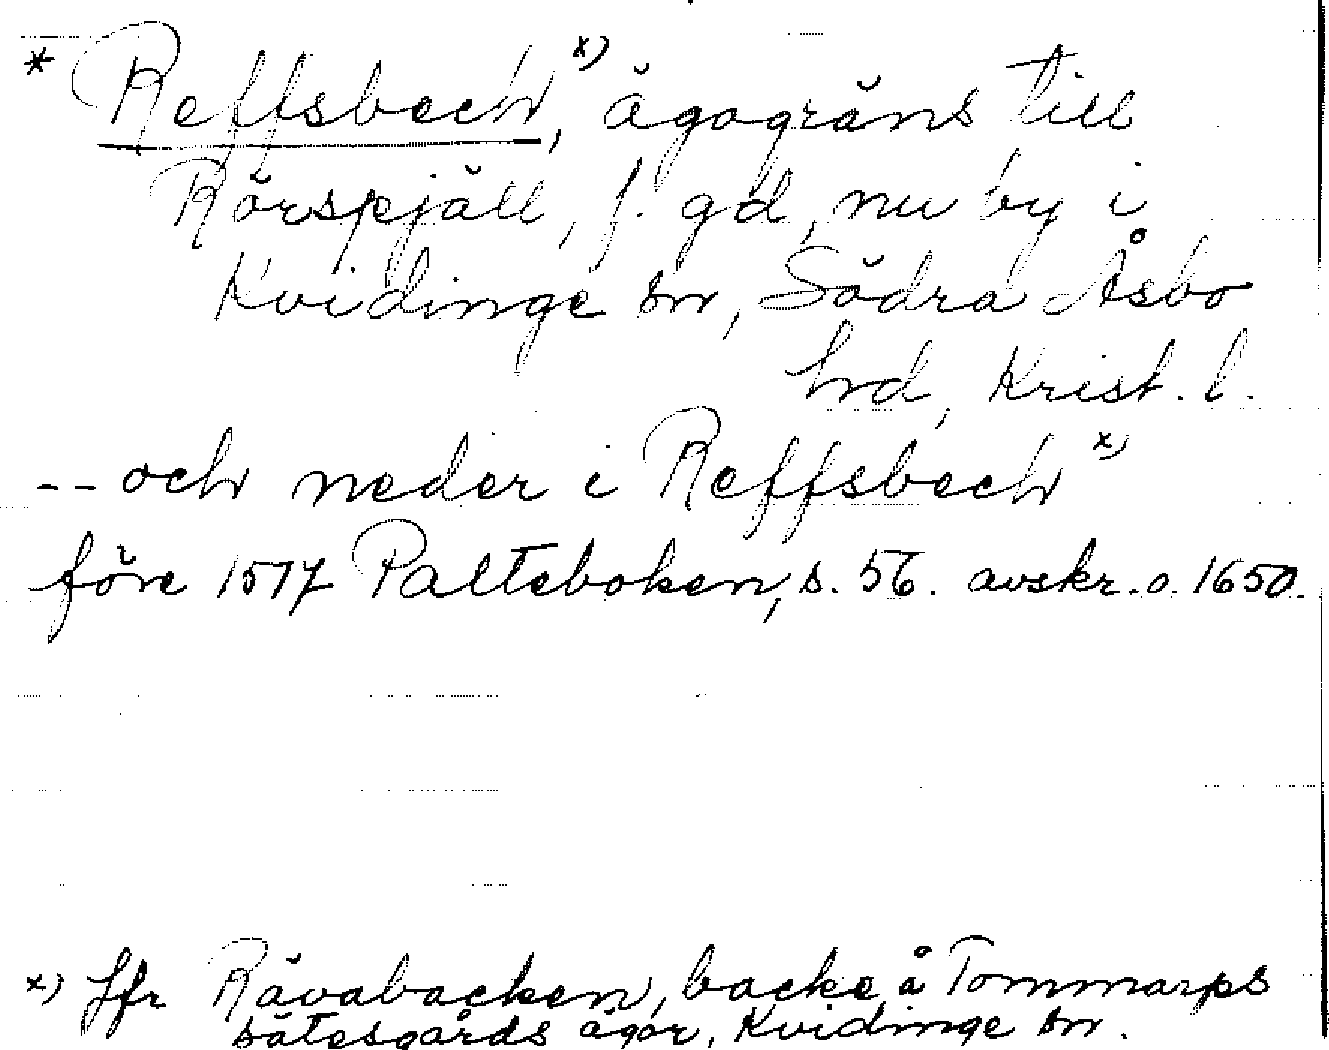 * Reffsbech x), ägogräns till
Rörspjäll, f. gd, nu by i
Kvidinge sn, Södra Åsbo
hrd, Krist. l.
-- och neder i Reffsbech x)
före 1517 Palteboken, s. 56. avskr. o. 1650.
x) Jfr Rävabacken, backe å Tommarps
sätesgårds ägor, Kvidinge sn.